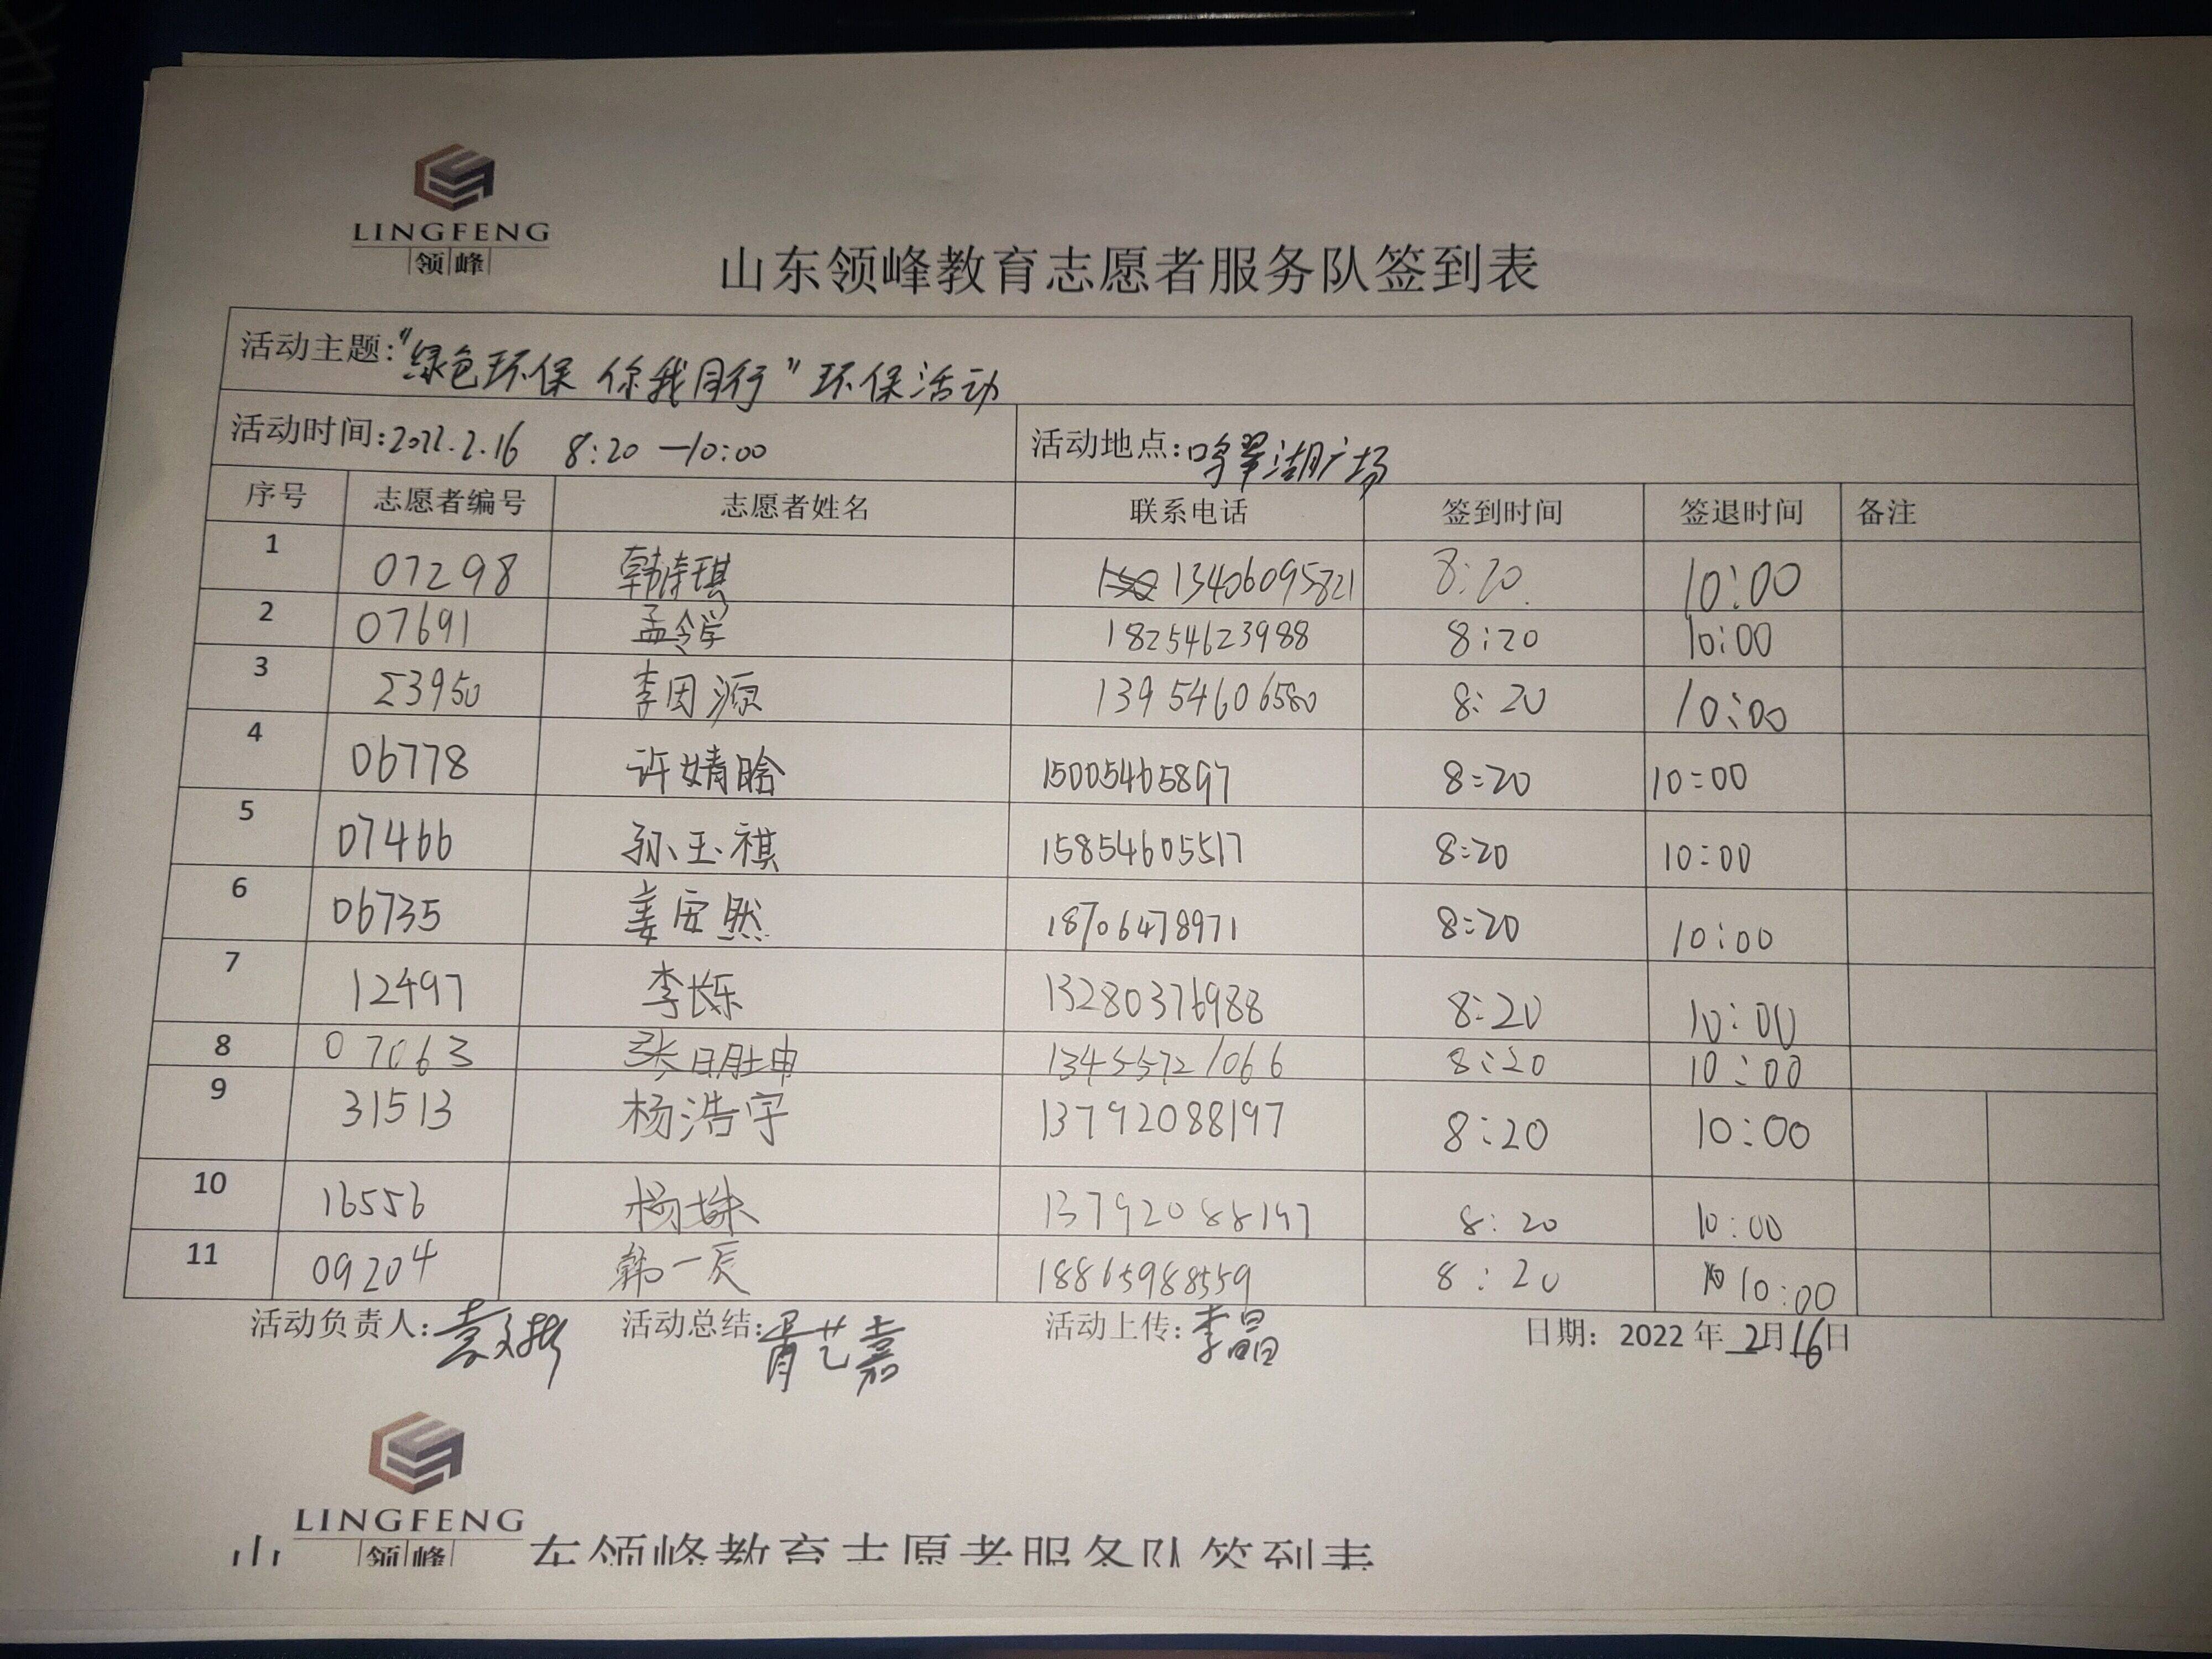 LINGFENG
领峰
山东领峰教育志愿者服务队签到表
活动主题:"绿色环保 你我同行"环保活动
活动时间:2022.2.16 8:20—10:00 活动地点:鸣翠湖广场
序号 志愿者编号 志愿者姓名 联系电话 签到时间 签退时间 备注
1 07298 韩诗琪 13406095821 8:20 10:00
2 07691 孟令学 18254623988 8:20 10:00
3 23950 李因源 13954606580 8:20 10:00
4 06778 许婧晗 15005465897 8:20 10:00
5 07466 孙玉祺 15854605517 8:20 10:00
6 06735 姜安然 18706478971 8:20 10:00
7 12497 李烁 13280376988 8:20 10:00
8 07063 张 13455721066 8:20 10:00
9 31513 杨浩宇 13792088197 8:20 10:00
10 16556 杨姝 13792088197 8:20 10:00
11 09204 韩一辰 18865988559 8:20 10:00
活动负责人: 活动总结:胥艺嘉 活动上传:李晶 日期: 2022年2月16日
LINGFENG
领峰
山东领峰教育志愿者服务队签到表